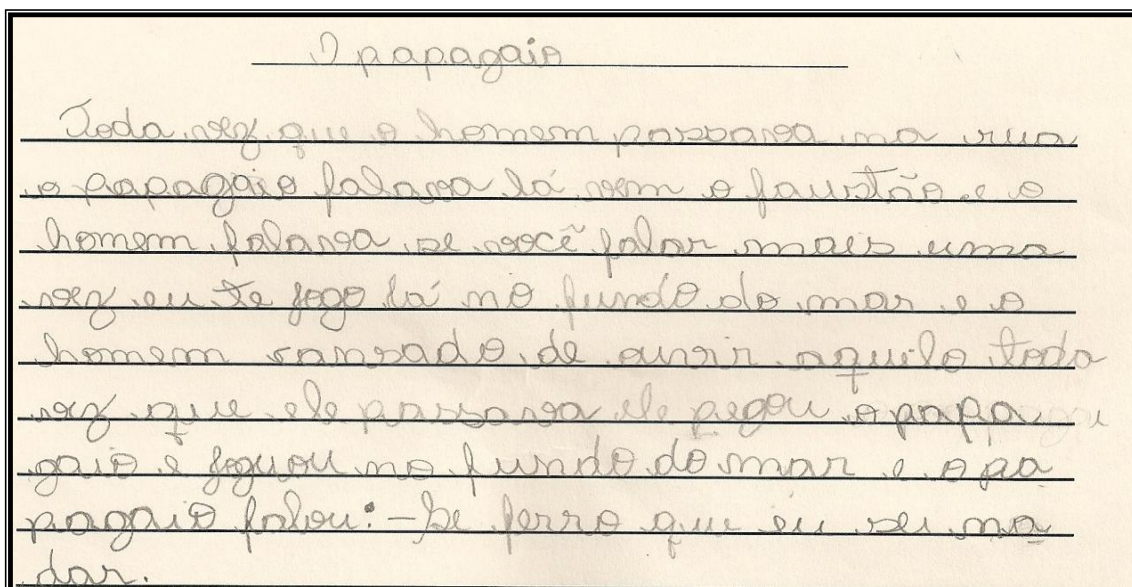 O papagaio
Toda vez que o homem passava na rua
o papagaio falava lá vem o faustão e o
homem falava se você falar mais uma
vez eu te jogo lá no fundo do mar e o
homem cansado de ouvir aquilo toda
vez que ele passava ele pegou o papa
gaio e joguou no fundo do mar e o pa
pagaio falou: - Se ferro que eu sei na
dar.